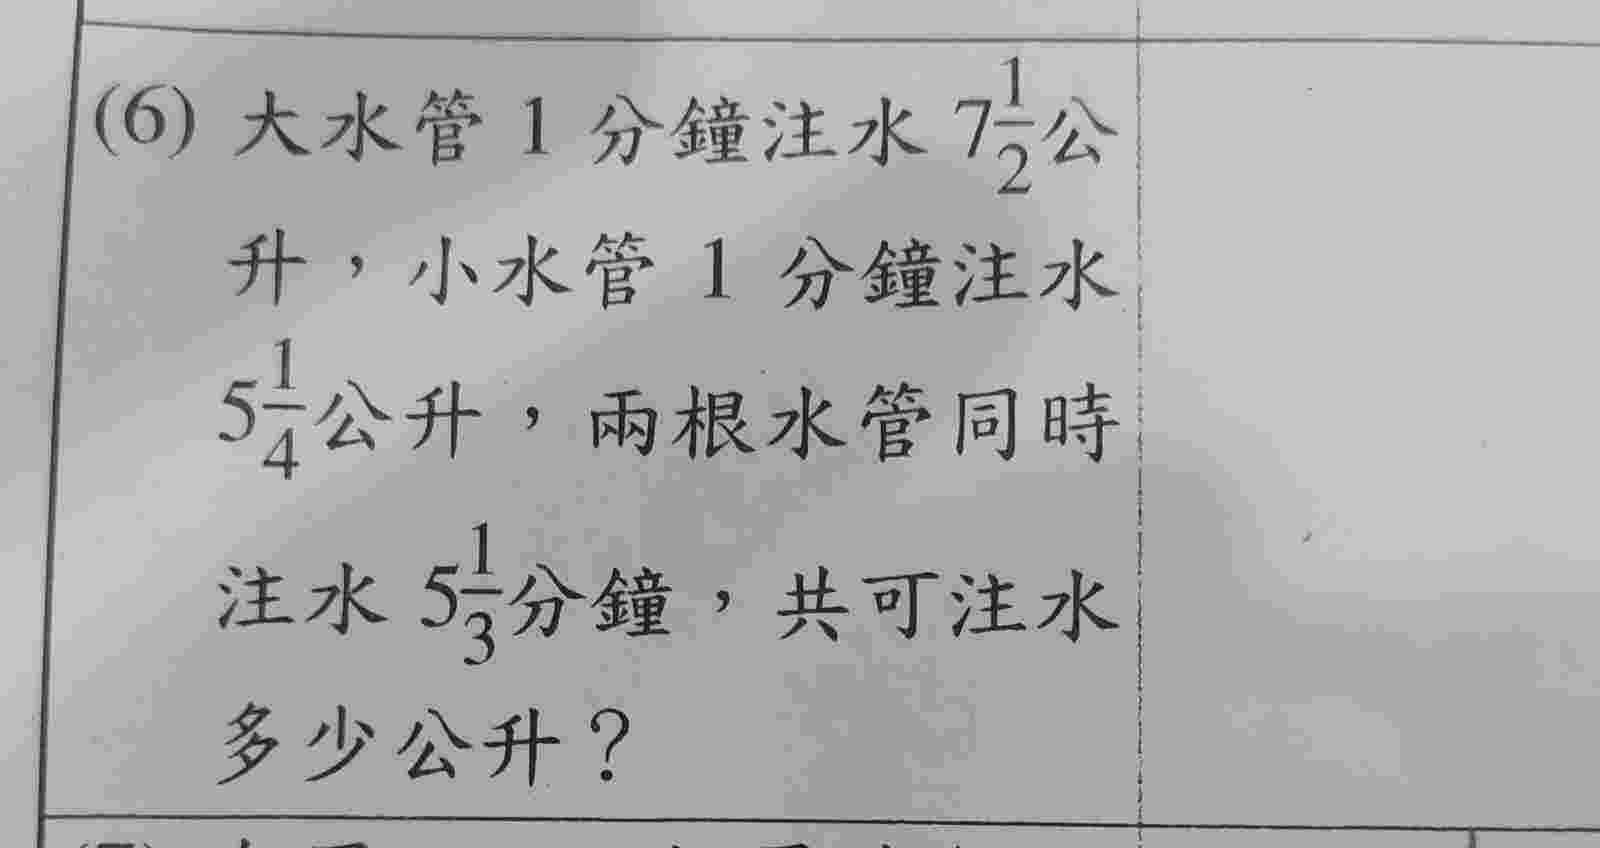 (6) 大水管 1 分鐘注水 7 1/2 公
升，小水管 1 分鐘注水
5 1/4 公升，兩根水管同時
注水 5 1/3 分鐘，共可注水
多少公升？